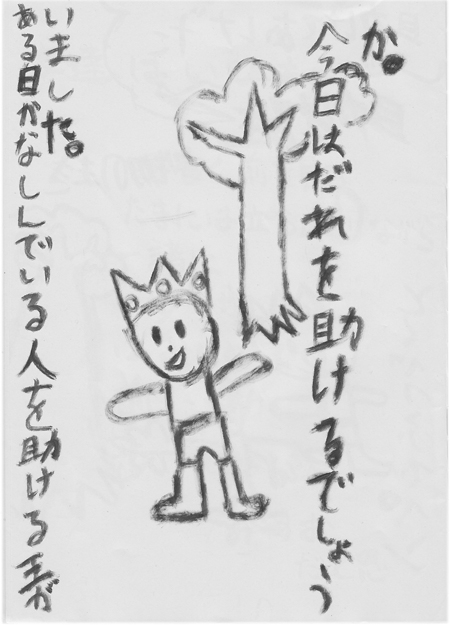 ある日かなしんでいる人を助ける王が
いました。
今日はだれを助けるでしょう
か。